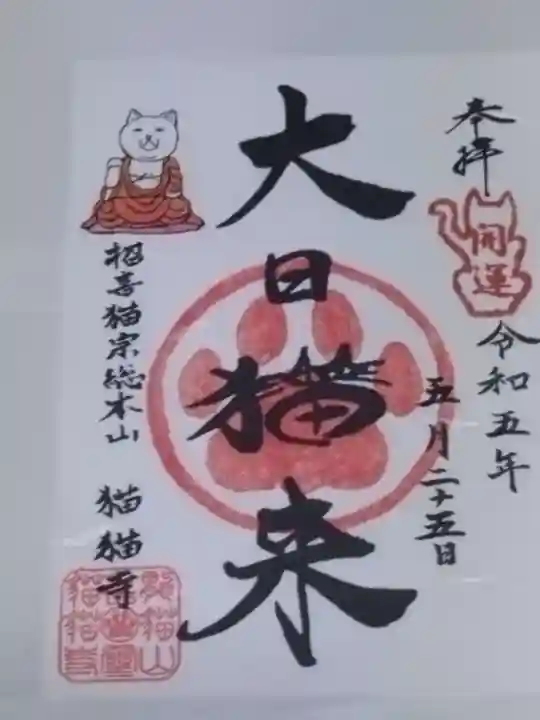 奉拝
開運
令和五年
五月二十五日
大日猫来
招喜猫宗総本山
猫猫寺